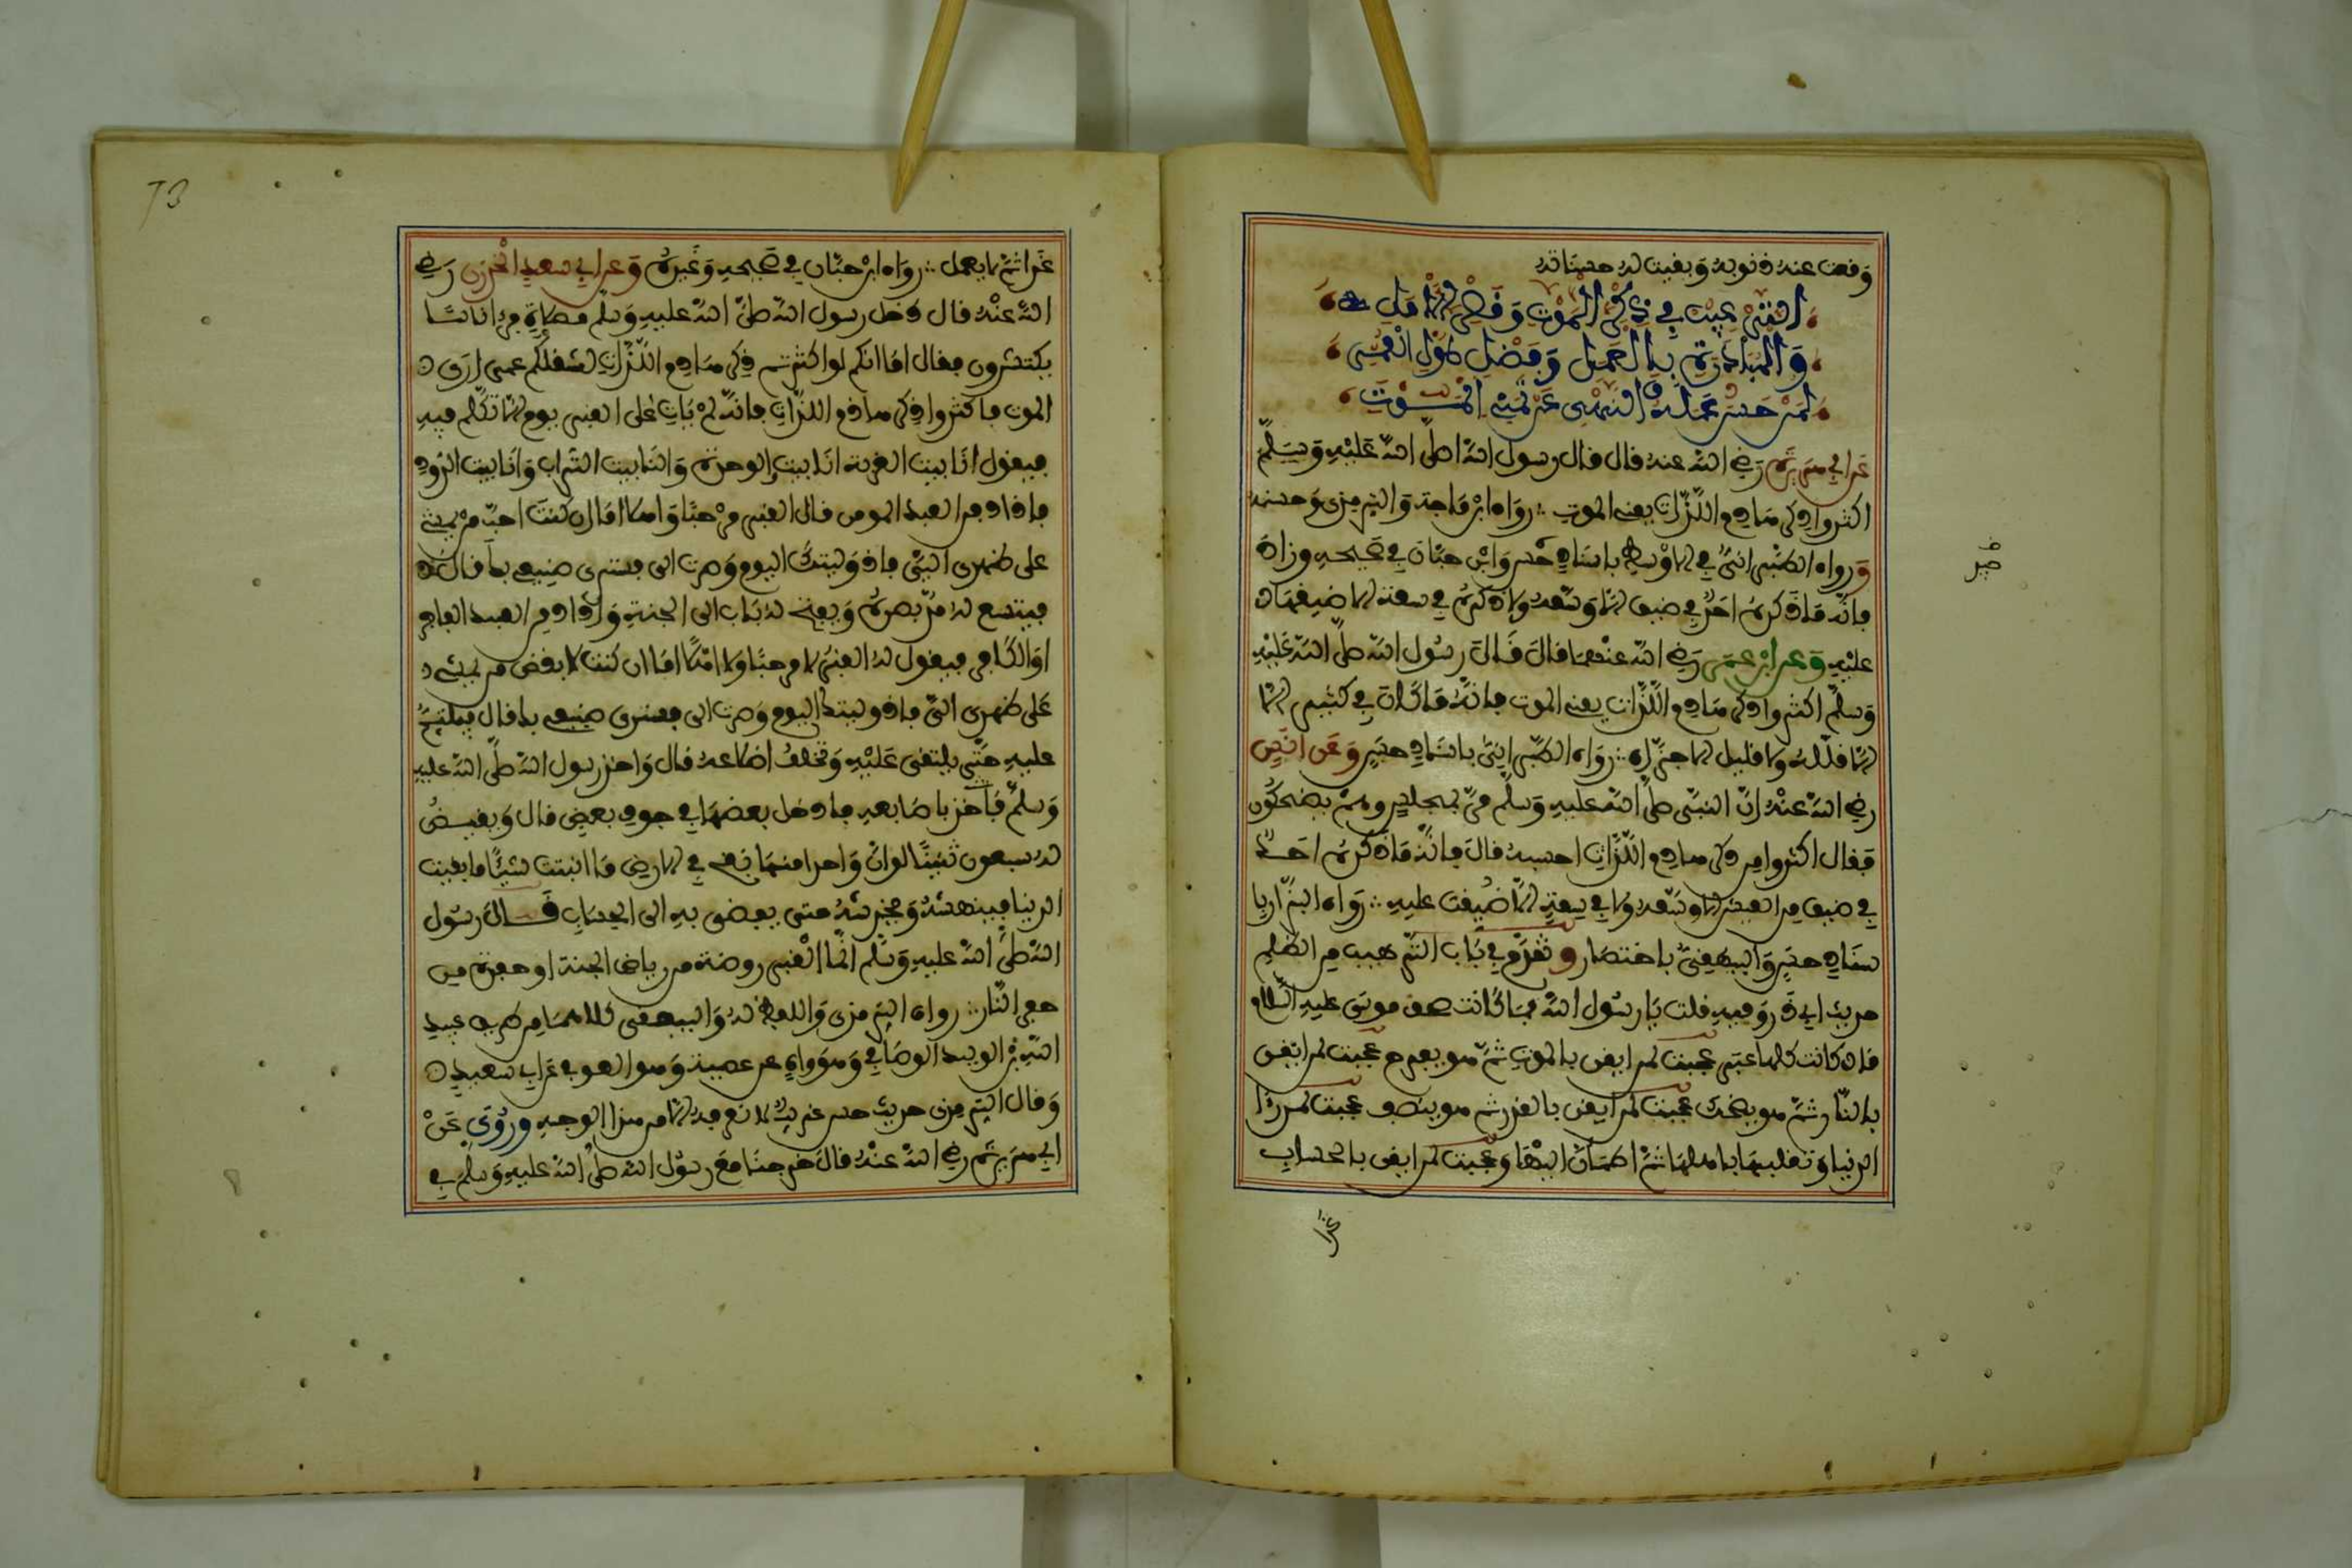 وقعت عنه ذنوبه وبقيت له حسناته
الترغيب في ذكر الموت وقصر الامل
والمبادرة بالعمل وفضل طول العمر
لمن حسن عمله والنهي عن تمني الموت
عن ابي هريرة رضي الله عنه قال قال رسول الله صلى الله عليه وسلم
اكثروا ذكر هاذم اللذات يعني الموت رواه ابن ماجة والترمذي وحسنه
ورواه الطبراني في الاوسط باسناد حسن وابن حبان في صحيحه وزاد
فانه ما ذكره احد في ضيق الا وسعه ولا ذكره في سعة الا ضيقها
عليه وعن ابن عمر رضي الله عنهما قال قال رسول الله صلى الله عليه
وسلم اكثروا ذكر هاذم اللذات يعني الموت فانه ما كان في كثير الا
الا قلله ولا قليل الا جزاه رواه الطبراني باسناد حسن وعن انس
رضي الله عنه ان النبي صلى الله عليه وسلم مر بمجلس وهم يضحكون
فقال اكثروا من ذكر هاذم اللذات احسبه قال فانه ما ذكره احد
في ضيق من العيش الا وسعه ولا في سعة الا ضيقت عليه رواه البزار با
سناد حسن والبيهقي باختصار وتقدم في باب الترهيب من الظلم
حديث ابي ذر وفيه قلت يا رسول الله فما كانت صحف موسى عليه السلام
قال كانت كلها عبر عجبت لمن ايقن بالموت ثم هو يفرح عجبت لمن ايقن
بالنار ثم هو يضحك عجبت لمن ايقن بالقدر ثم هو ينصب عجبت لمن را
الدنيا وتقلبها باهلها ثم اطمان اليها وعجبت لمن ايقن بالحساب
غدا
غدا ثم لا يعمل رواه ابن حبان في صحيحه وغيره وعن ابي سعيد الخدري رضي
الله عنه قال دخل رسول الله صلى الله عليه وسلم مصلاه فرءا ناسا
يكتشرون فقال اما انكم لو اكثرتم ذكر هاذم اللذات لشغلكم عما ارى
الموت فاكثروا ذكر هاذم اللذات فانه لم يات على القبر يوم الا تكلم فيه
فيقول انا بيت الغربة انا بيت الوحدة وانا بيت التراب وانا بيت الدود
فاذا دفن العبد المومن قال القبر مرحبا واهلا اما ان كنت احب من يمشي
على ظهري الي فاذ وليتك اليوم وصرت الي فسترى صنيعي بك قال
فيتسع له مد بصره ويفتح له باب الى الجنة واذا دفن العبد الفاجر
او الكافر فيقول له القبر لا مرحبا ولا اهلا اما ان كنت لابغض من يمشي
على ظهري الي فاذ وليتك اليوم وصرت الي فسترى صنيعي بك قال فيلتئم
عليه حتى يلتقي عليه وتختلف اضلاعه قال واخذ رسول الله صلى الله عليه
وسلم فاخذ باصابعه فادخل بعضها في جوف بعض قال ويقيض
له سبعون تنينا لو ان واحدا منها نفخ في الارض ما انبتت شيئا ما بقيت
الدنيا فينهشه ويخدشه حتى يفضى به الى الحساب قال رسول
الله صلى الله عليه وسلم انما القبر روضة من رياض الجنة او حفرة من
حفر النار رواه الترمذي واللفظ له والبيهقي كلاهما من طريق عبيد
الله بن الوليد الوصافي وهو واه عن عطية وهو العوفي عن ابي سعيد
وقال الترمذي حديث حسن غريب لا نعرفه الا من هذا الوجه وروي عن
ابي هريرة رضي الله عنه قال خرجنا مع رسول الله صلى الله عليه وسلم في